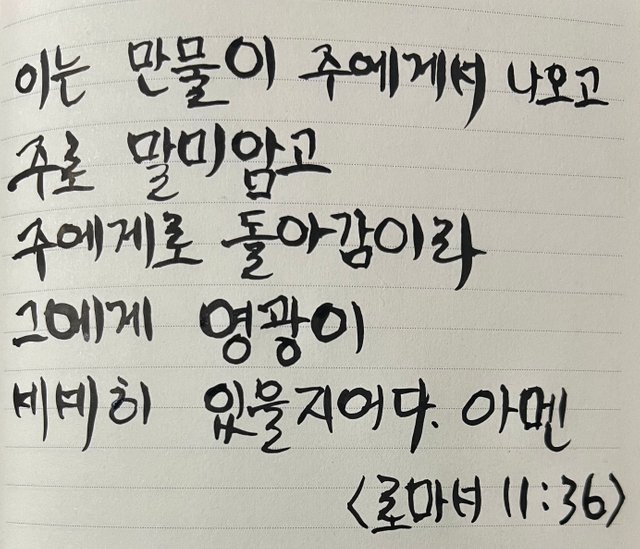 이는 만물이 주에게서 나오고
주로 말미암고
주에게로 돌아감이라
그에게 영광이
세세히 있을지어다. 아멘
<로마서 11:36>